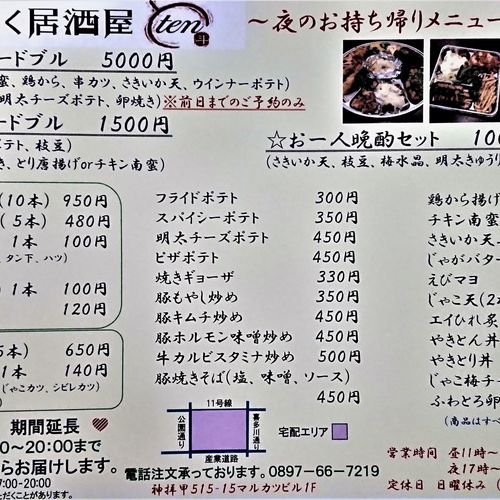 く居酒屋 ten 斗
～夜のお持ち帰りメニュー
ードブル 5000円
蜜、鶏から、串カツ、さきいか天、ウインナーポテト
明太チーズポテト、卵焼き)※前日までのご予約のみ
ードブル 1500円
ポテト、枝豆
き、とり唐揚げorチキン南蜜)
☆お一人晩酌セット 100
(さきいか天、枝豆、梅水晶、明太きゅうり
(10本) 950円
(5本) 480円
1本 100円
タン下、ハツ)
1本 100円
120円
5本) 650円
1本 140円
じゃこカツ、シビレカツ)
フライドポテト 300円
スパイシーポテト 350円
明太チーズポテト 450円
ピザポテト 450円
焼きギョーザ 330円
豚もやし炒め 350円
豚キムチ炒め 450円
豚ホルモン味噌炒め 450円
牛カルビスタミナ炒め 500円
豚焼きそば(塩、味噌、ソース)
450円
鶏から揚げ
チキン南蜜
さきいか天
じゃがバター
えびマヨ
じゃこ天(2
エイひれ炙
やきとん丼
やきとり丼
じゃこ梅チー
ふわとろ卵
(商品はすべ
期間延長
0～20:00まで
らお届けします。
7:00-20:00
ただくことがあります。
11号線
公園通り
喜多川通り
産業道路
宅配エリア
電話注文承っております。0897-66-7219
神拝甲515-15マルカツビル1F
営業時間 昼11時～
夜17時～
定休日 日曜休み